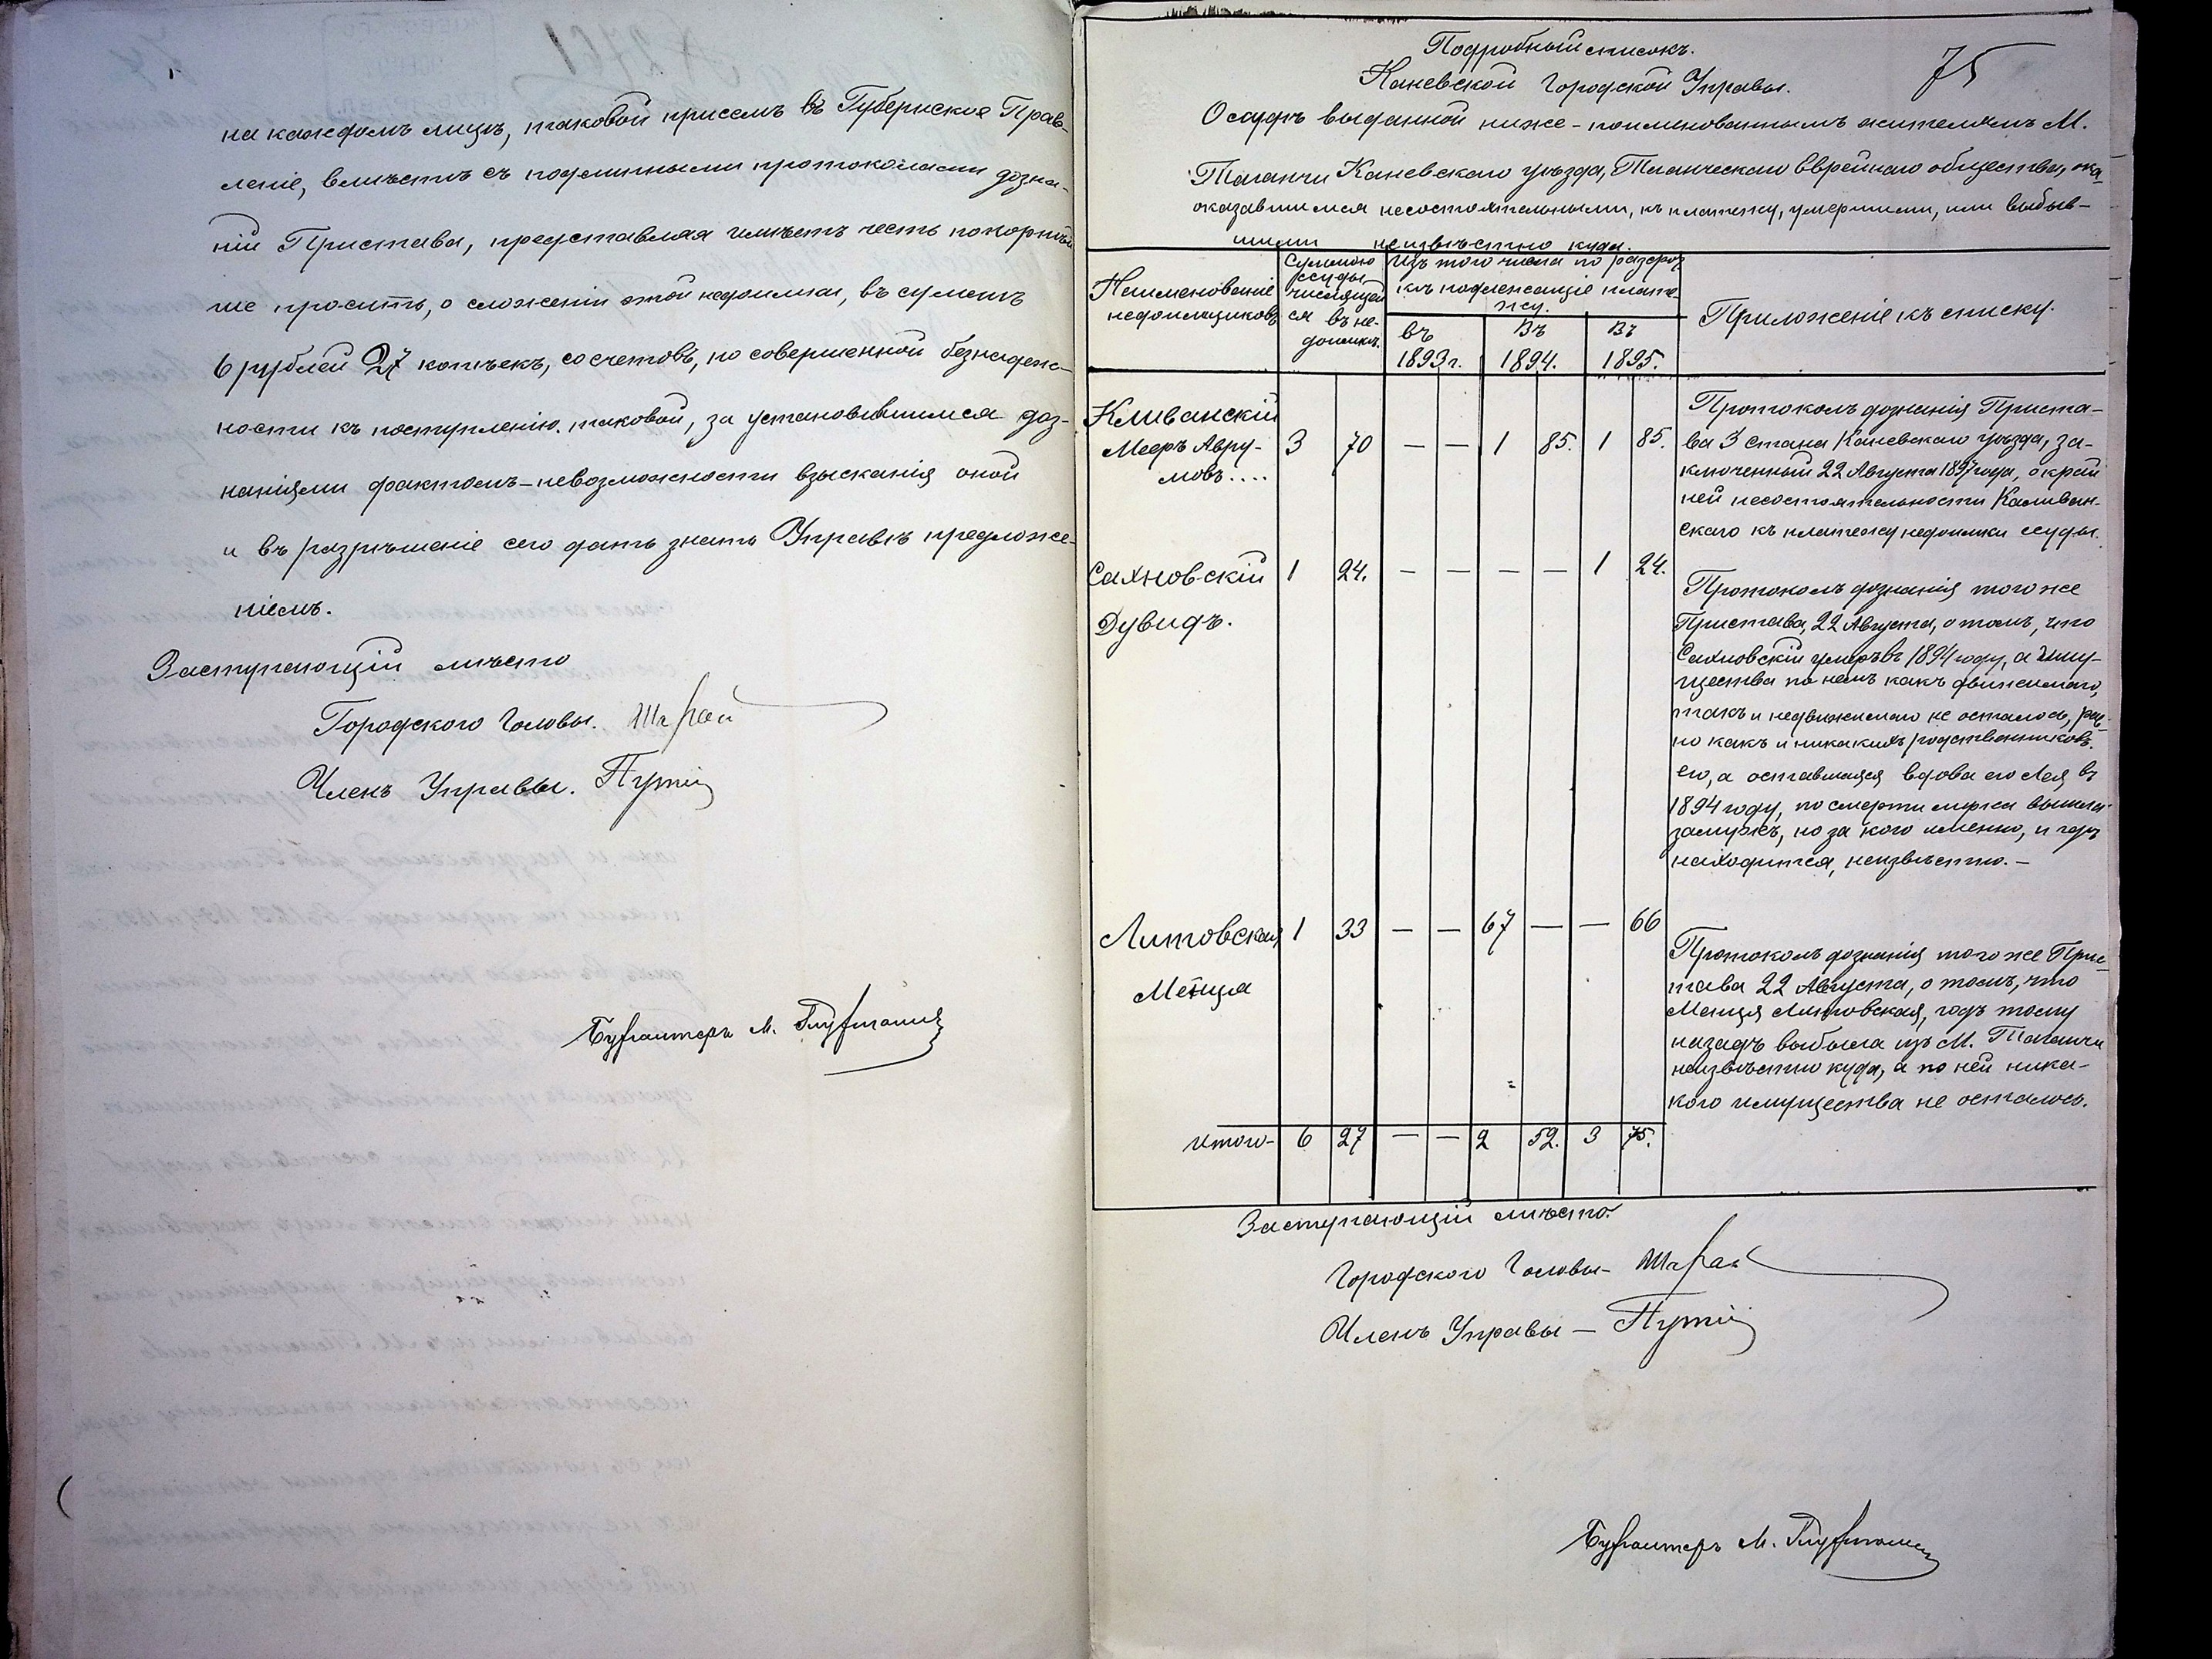 на каждомъ лицѣ, таковой присемъ въ Губернское Прав-
леніе, вмѣстѣ съ подлинными протоколами дозна-
ній Пристава, представляя имѣетъ честь покорнѣй
ше просить, о сложеніи этой недоимки, въ суммѣ
6 рублей 27 копѣекъ, со счетовъ, по совершенной безнадеж-
ности къ поступленію таковой, за установившимся доз-
наніями фактомъ - невозможности взысканія оной
и въ разрѣшеніе сего дать знать Управѣ предложе-
ніемъ.
Заступающій мѣсто
Городского Головы.
Членъ Управы.
Бухгалтеръ М.
75
Подробный списокъ.
Каневской Городской Управы.
О ссудѣ выданной ниже-поименованнымъ жителямъ М.
Таганчи Каневскаго уѣзда, Таганческаго Еврейскаго общества, ока
оказавшимся несостоятельными, къ платежу, умершими, или выбыв-
шими неизвѣстно куда.
Наименованіе
недоимщиковъ
Суммою
ссуды
числящей
ся въ не-
доимкѣ.
Изъ того числа по разсроч
кѣ подлежащіе плате-
жу.
въ
1893 г.
Въ
1894.
Въ
1895.
Приложеніе къ списку.
Кливанскій
Мееръ Авру-
мовъ.... 3 70 — — 1 85. 1 85.
Протоколъ дознанія Приста-
ва 3 стана Каневскаго уѣзда, за-
ключенный 22 Августа 1897 года, о край
ней несостоятельности Каливан-
скаго къ платежу недоимки ссуды.
Сахновскій 1 24. — — — — 1 24.
Дувидъ.
Протоколъ дознанія того же
Пристава, 22 Августа, о томъ, что
Сахновскій умеръ въ 1894 году, а иму-
щества по немъ какъ движимаго,
такъ и недвижимаго не осталось, рав-
но какъ и никакихъ родственниковъ
его, а оставшаяся вдова его Лея въ
1894 году, по смерти мужа вышла
замужъ, но за кого именно, и гдѣ
находится, неизвѣстно. —
Литовская 1 33 — — 67 — — 66
Менця
Протоколъ дознанія того же Прис-
тава 22 Августа, о томъ, что
Менця Литовская, годъ тому
назадъ выбыла изъ М. Таганчи
неизвѣстно куда, а по ней ника-
кого имущества не осталось.
Итого- 6 27 — — 2 52. 3 75.
Заступающій мѣсто
Городского Головы-
Членъ Управы —
Бухгалтеръ М.